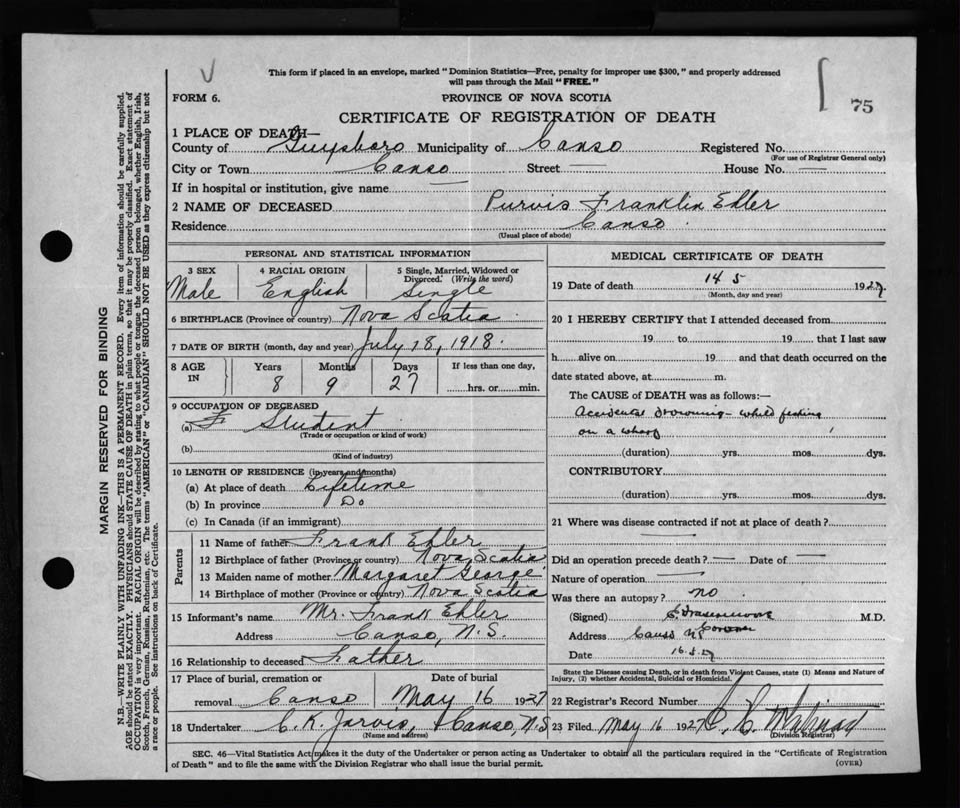 This form if placed in an envelope, marked "Dominion Statistics—Free, penalty for improper use $300," and properly addressed
will pass through the Mail "FREE."
75
FORM 6.
PROVINCE OF NOVA SCOTIA
CERTIFICATE OF REGISTRATION OF DEATH
1 PLACE OF DEATH—
County of Guysboro Municipality of Canso Registered No.
(For use of Registrar General only)
City or Town Canso Street — House No. —
If in hospital or institution, give name —
2 NAME OF DECEASED Purvis Franklin Ehler
Residence Canso
(Usual place of abode)
MARGIN RESERVED FOR BINDING
N.B.—WRITE PLAINLY WITH UNFADING INK—THIS IS A PERMANENT RECORD. Every item of information should be carefully supplied.
AGE should be stated EXACTLY. PHYSICIANS should STATE CAUSE OF DEATH in plain terms, so that it may be properly classified. Exact statement of
OCCUPATION is very important. RACIAL ORIGIN will be described by stating to what people or tongue the deceased person belonged, whether English, Irish,
Scotch, French, German, Russian, Ruthenian, etc. The terms "AMERICAN" or "CANADIAN" SHOULD NOT BE USED as they express citizenship but not
a race or people. See instructions on back of Certificate.
PERSONAL AND STATISTICAL INFORMATION
3 SEX
Male
4 RACIAL ORIGIN
English
5 Single, Married, Widowed or
Divorced. (Write the word)
Single
6 BIRTHPLACE (Province or country) Nova Scotia
7 DATE OF BIRTH (month, day and year) July 18, 1918.
8 AGE
IN
Years Months Days If less than one day,
8 9 27 hrs. or min.
9 OCCUPATION OF DECEASED
(a) Student
(Trade or occupation or kind of work)
(b)
(Kind of industry)
10 LENGTH OF RESIDENCE (in years and months)
(a) At place of death Lifetime
(b) In province Do
(c) In Canada (if an immigrant)
Parents
11 Name of father Frank Ehler
12 Birthplace of father (Province or country) Nova Scotia
13 Maiden name of mother Margaret George
14 Birthplace of mother (Province or country) Nova Scotia
15 Informant's name Mr. Frank Ehler
Address Canso, N.S.
16 Relationship to deceased Father
17 Place of burial, cremation or Date of burial
removal Canso May 16 1927
18 Undertaker C. K. Jarvis, Canso, N.S
(Name and address)
MEDICAL CERTIFICATE OF DEATH
19 Date of death 14 5 1927
(Month, day and year)
20 I HEREBY CERTIFY that I attended deceased from
19 to 19 that I last saw
h alive on 19 and that death occurred on the
date stated above, at m.
The CAUSE of DEATH was as follows:—
Accidental drowning — while
on a wharf
(duration) yrs. mos. dys.
CONTRIBUTORY
(duration) yrs. mos. dys.
21 Where was disease contracted if not at place of death?
Did an operation precede death? — Date of —
Nature of operation —
Was there an autopsy? no
(Signed) M.D.
Address Canso NS
Date 16.5.27
State the Disease causing Death, or in death from Violent Causes, state (1) Means and Nature of
Injury, (2) whether Accidental, Suicidal or Homicidal.
22 Registrar's Record Number
23 Filed May 16 1927
(Division Registrar)
SEC. 46—Vital Statistics Act makes it the duty of the Undertaker or person acting as Undertaker to obtain all the particulars required in the "Certificate of Registration
of Death" and to file the same with the Division Registrar who shall issue the burial permit.
(OVER)